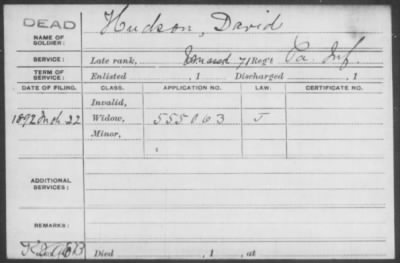 DEAD
NAME OF SOLDIER: Hudson, David
SERVICE: Late rank, Unassd 71 Reg't Pa. Inf.
TERM OF SERVICE: Enlisted , 1 Discharged , 1
DATE OF FILING. CLASS. APPLICATION NO. LAW. CERTIFICATE NO.
Invalid,
1892 Mch 22 Widow, 555063 J
Minor,
ADDITIONAL SERVICES:
REMARKS:
Died , 1 , at